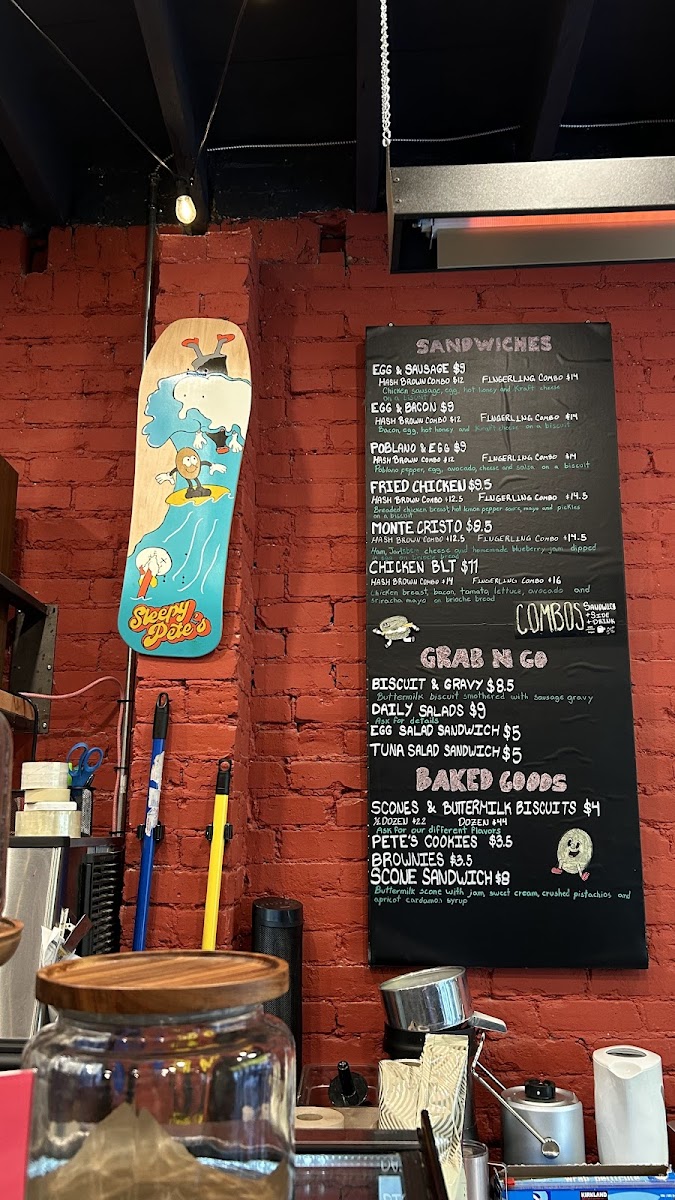 Sleepy
Pete's
SANDWICHES
EGG & SAUSAGE $9
HASH BROWN COMBO $12 FINGERLING COMBO $14
Chicken sausage, egg, hot honey and Kraft cheese
on a biscuit
EGG & BACON $9
HASH BROWN COMBO $12 FINGERLING COMBO $14
Bacon, egg, hot honey and Kraft cheese on a biscuit
POBLANO & EGG $9
HASH BROWN COMBO $12 FINGERLING COMBO $14
Poblano pepper, egg, avocado, cheese and salsa on a biscuit
FRIED CHICKEN $9.5
HASH BROWN COMBO $12.5 FINGERLING COMBO $14.5
Breaded chicken breast, hot lemon pepper sauce, mayo and pickles
on a biscuit
MONTE CRISTO $9.5
HASH BROWN COMBO $12.5 FINGERLING COMBO $14.5
Ham, Jarlsberg cheese and homemade blueberry jam dipped
in egg on brioche bread
CHICKEN BLT $11
HASH BROWN COMBO $14 FINGERLING COMBO $16
Chicken breast, bacon, tomato, lettuce, avocado and
sriracha mayo on brioche bread
COMBOS SANDWICH
+ SIDE
+ DRINK
GRAB N GO
BISCUIT & GRAVY $8.5
Buttermilk biscuit smothered with sausage gravy
DAILY SALADS $9
Ask for details
EGG SALAD SANDWICH $5
TUNA SALAD SANDWICH $5
BAKED GOODS
SCONES & BUTTERMILK BISCUITS $4
½ DOZEN $22 DOZEN $44
Ask for our different flavors
PETE'S COOKIES $3.5
BROWNIES $3.5
SCONE SANDWICH $8
Buttermilk scone with jam, sweet cream, crushed pistachios and
apricot cardamom syrup
KIRKLAND